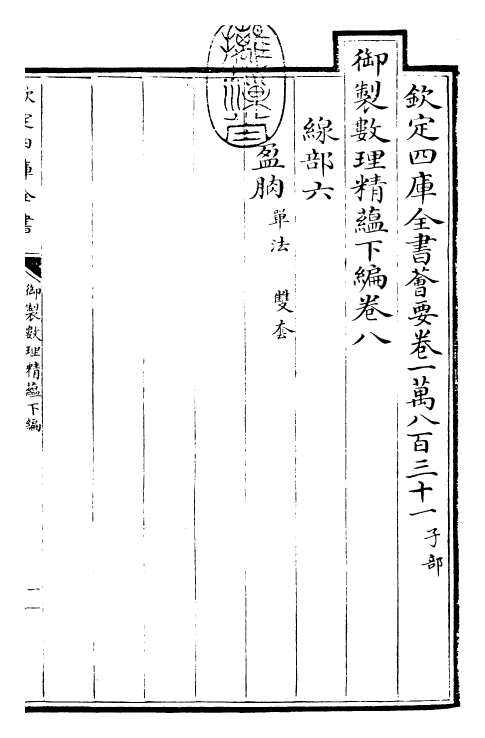 欽定四庫全書薈要卷一萬八百三十一 子部
御製數理精蘊下編卷八
線部六
盈朒 單法 雙套
欽定四庫全書
御製數理精蘊下編
一
摛藻堂